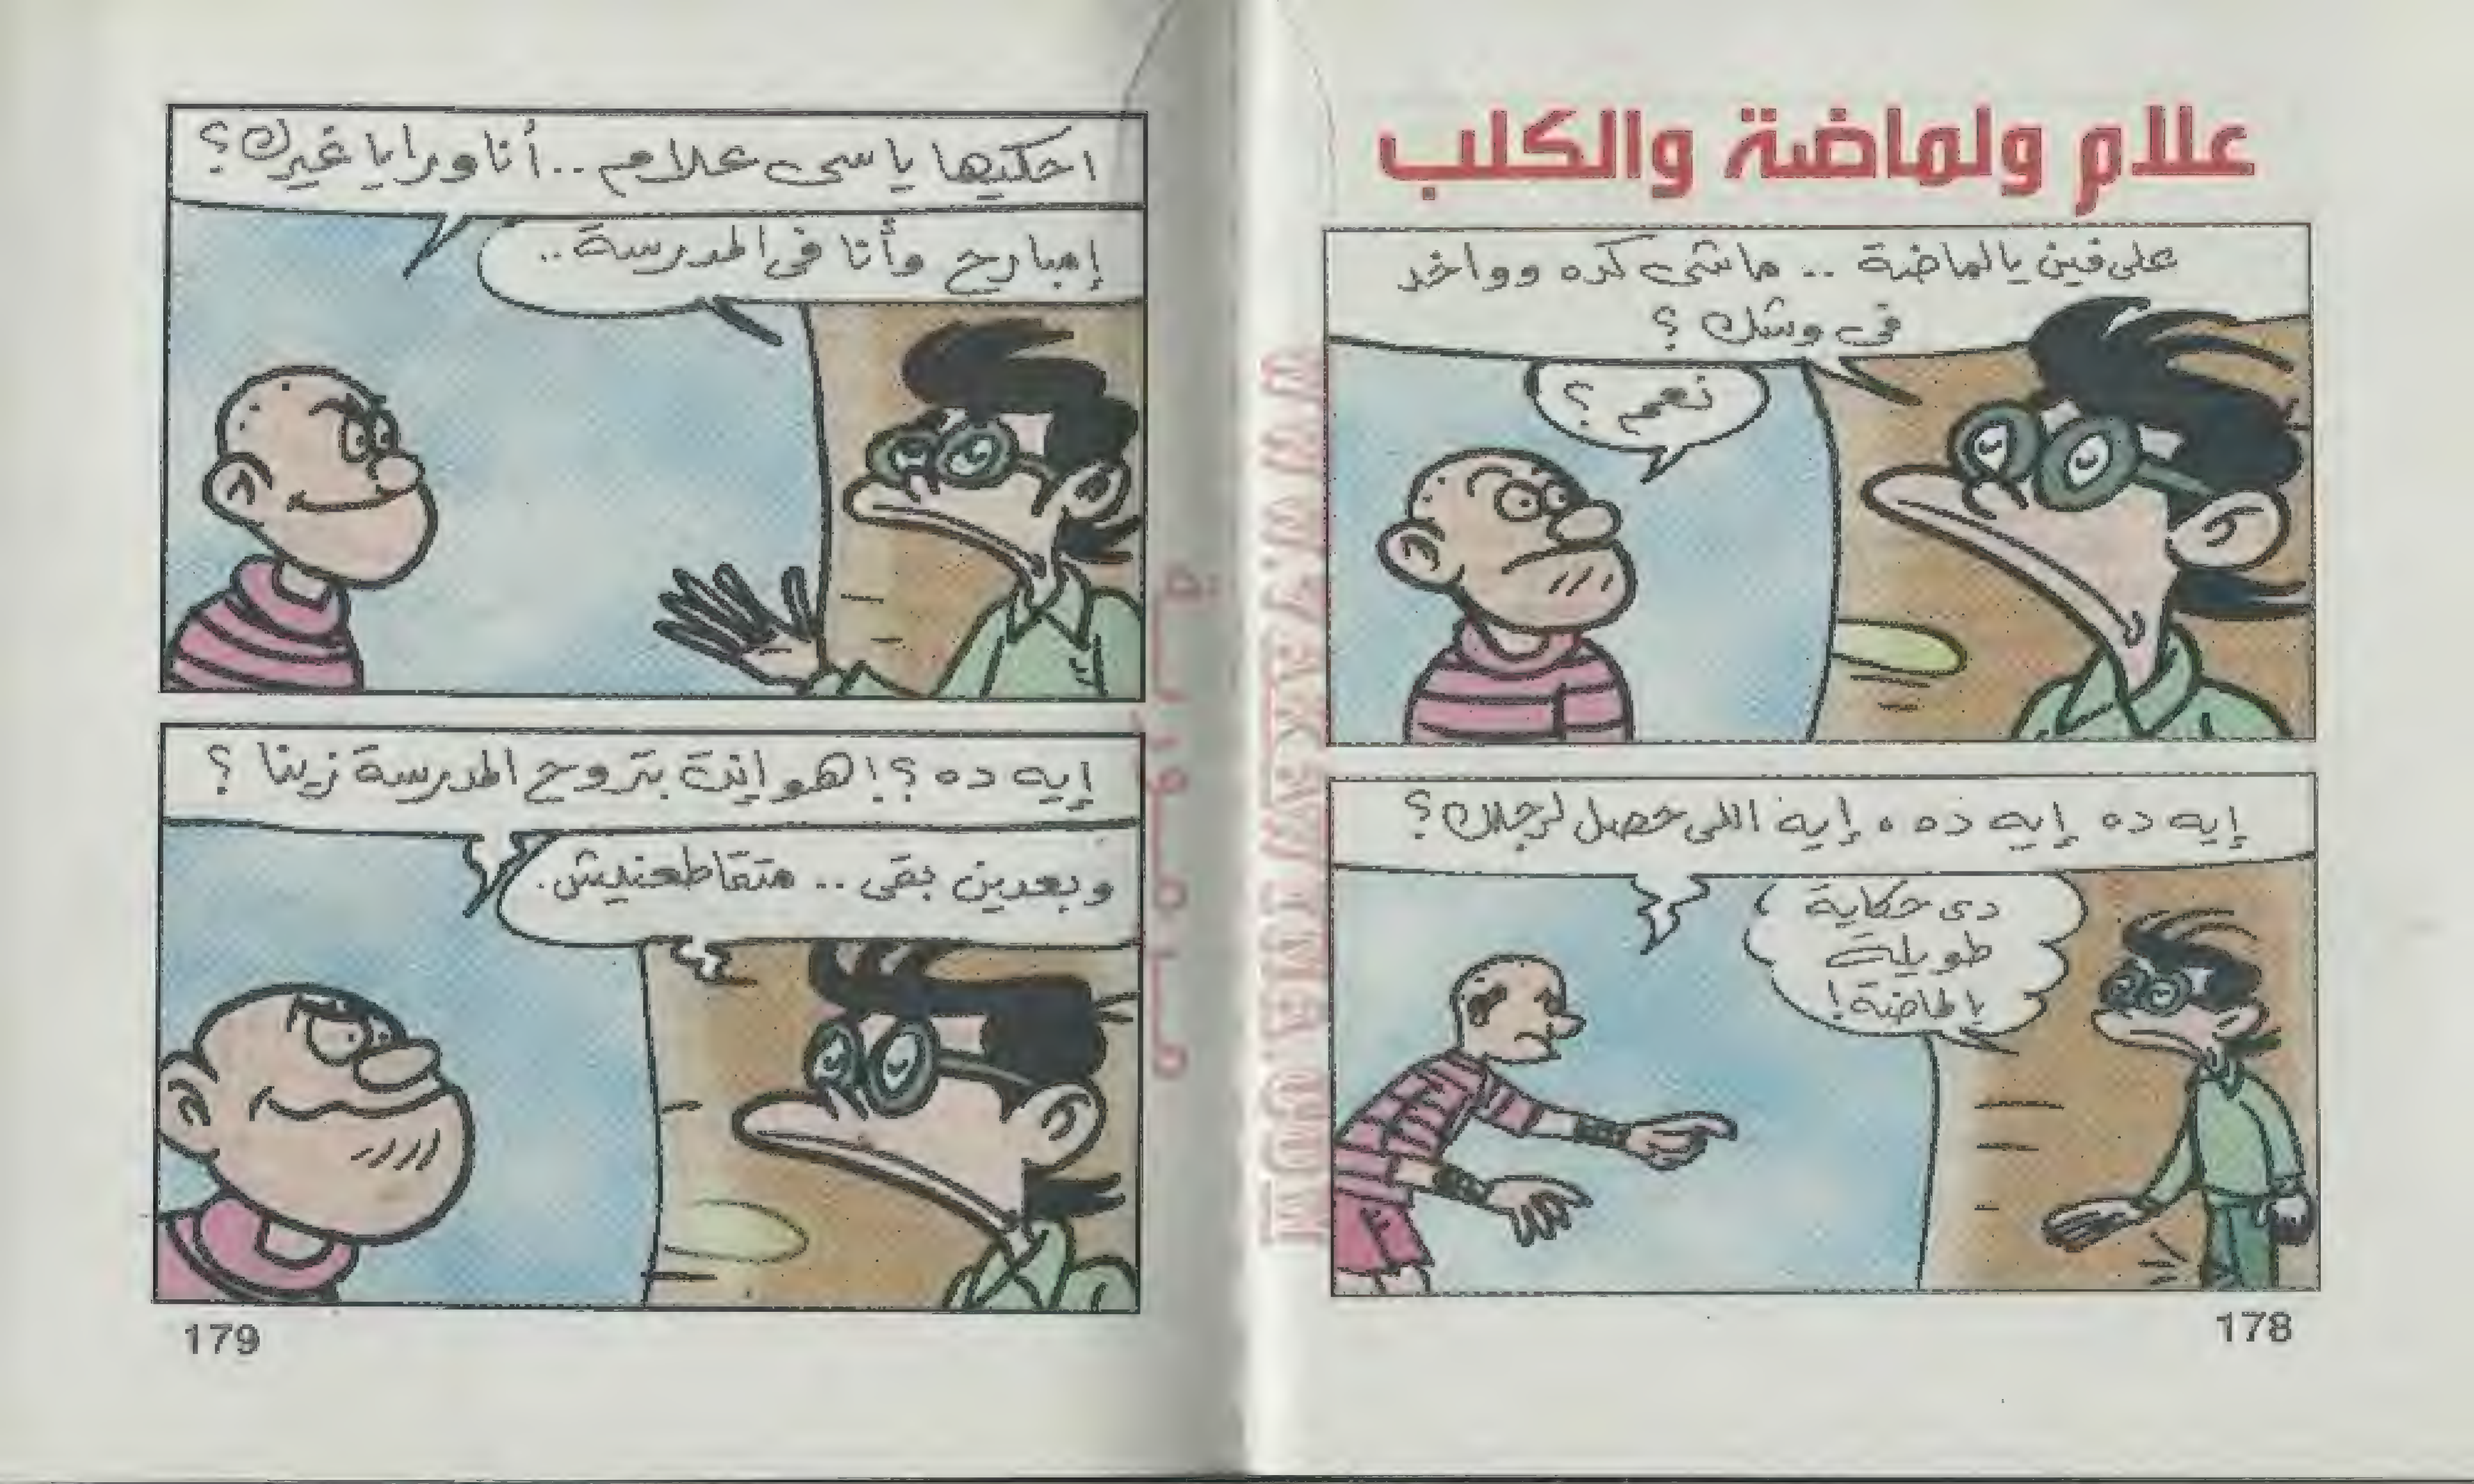 علام ولماضة والكلب
على فين يا لماضة .. ماشى كده وواخد
فى وشك ؟
نعم ؟
إيه ده إيه ده ، إيه اللى حصل لرجلك ؟
دى حكاية
طويلة
يا لماضة !
178
احكيها يا سى علام .. أنا ورايا غيرك ؟
إمبارح وأنا فى المدرسة ..
إيه ده ؟! هو إنت بتروح المدرسة زينا ؟
وبعدين بقى .. متقاطعنيش .
179